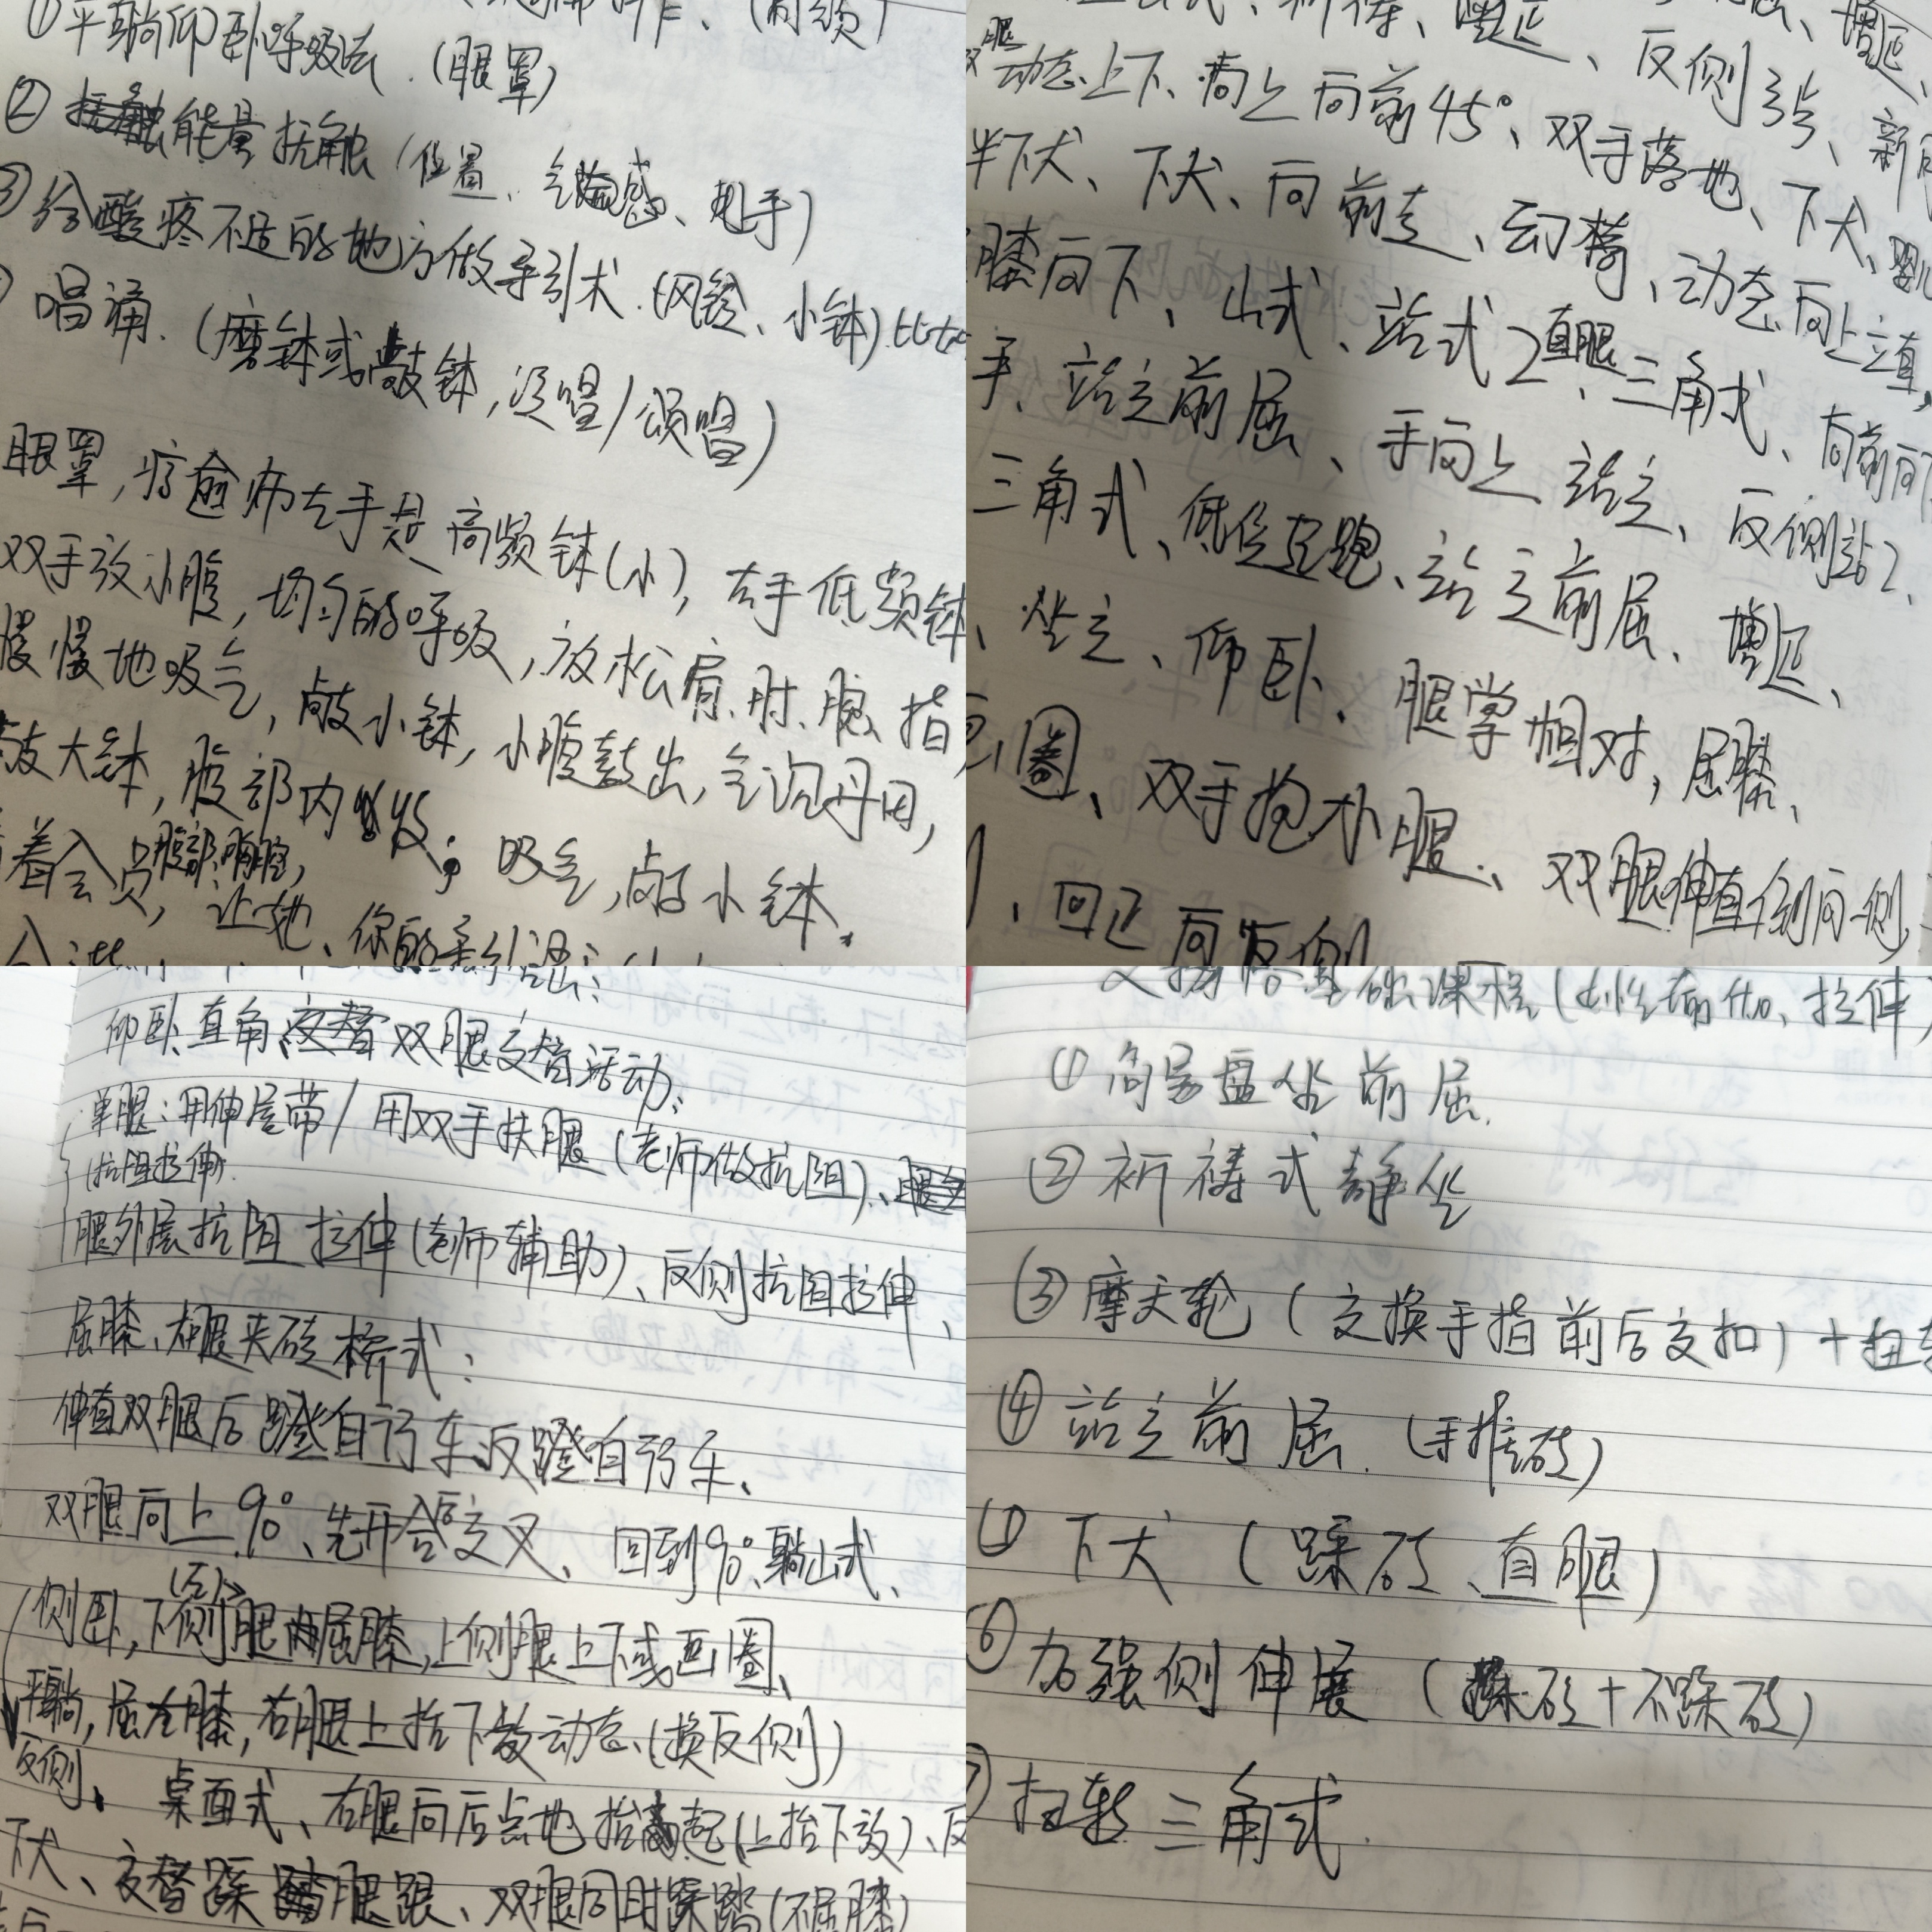 ①平躺仰卧呼吸法.(眼罩)
②能量抚触(位置、气感、手)
③给酸疼不适的地方做导引术.(风铃、小钵)
唱诵.(磨钵或敲钵,泛唱/颂唱)
眼罩,疗愈师左手是高频钵(小),右手低频钵
双手放小腹,均匀的呼吸,放松肩、肘、腕、指
慢慢地吸气,敲小钵,小腹鼓出,气沉丹田,
敲大钵,腹部内收;吸气,敲小钵,
着会员腹部,胸腔,让她、你的
反侧
双腿动态上下、向上向前45°、双手落地、下犬、
半下犬、下犬、向前走、幻椅、动态向上立直,
膝向下、山式、站式2直腿、三角式、向前
手、站立前屈、手向上站立、反侧站2、
三角式、低位起跑、站立前屈、增延、
、坐立、仰卧、腿掌相对,屈膝、
画圈、双手抱小腿、双腿伸直倒向一侧
、回正向反侧
仰卧直角、双腿交替活动:
单腿:用伸展带/用双手扶腿(老师做抗阻)、
(抗阻拉伸)
腿外展抗阻拉伸(老师辅助)、反侧抗阻拉伸、
屈膝、夹砖桥式:
伸直双腿后蹬自行车反蹬自行车、
双腿向上90°、先开合后交叉、回到90°、躺山式、
(左)
侧卧,下侧腿屈膝,上侧腿上下或画圈、
平躺,屈左膝,右腿上抬下放动态、(换反侧)
反侧、桌面式、右腿向后点地抬起(上抬下放)、反
下犬、交替踩腿跟、双腿同时踩踏(不屈膝)
基础课程(女性瑜伽、拉伸)
①简易盘坐前屈.
②祈祷式静坐
③摩天轮(交换手指前后交扣)+扭转
④站立前屈.(手推砖)
⑤下犬(踩砖、直腿)
⑥加强侧伸展(踩砖+不踩砖)
⑦扭转三角式.